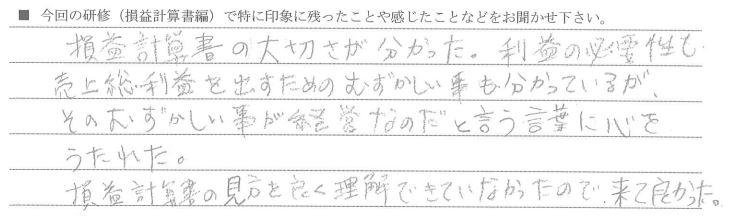 ■ 今回の研修（損益計算書編）で特に印象に残ったことや感じたことなどをお聞かせ下さい。
損益計算書の大切さが分かった。利益の必要性も
売上総利益を出すためのむずかしい事も分かっているが、
そのむずかしい事が経営なのだと言う言葉に心を
うたれた。
損益計算書の見方を良く理解できていなかったので、来て良かった。